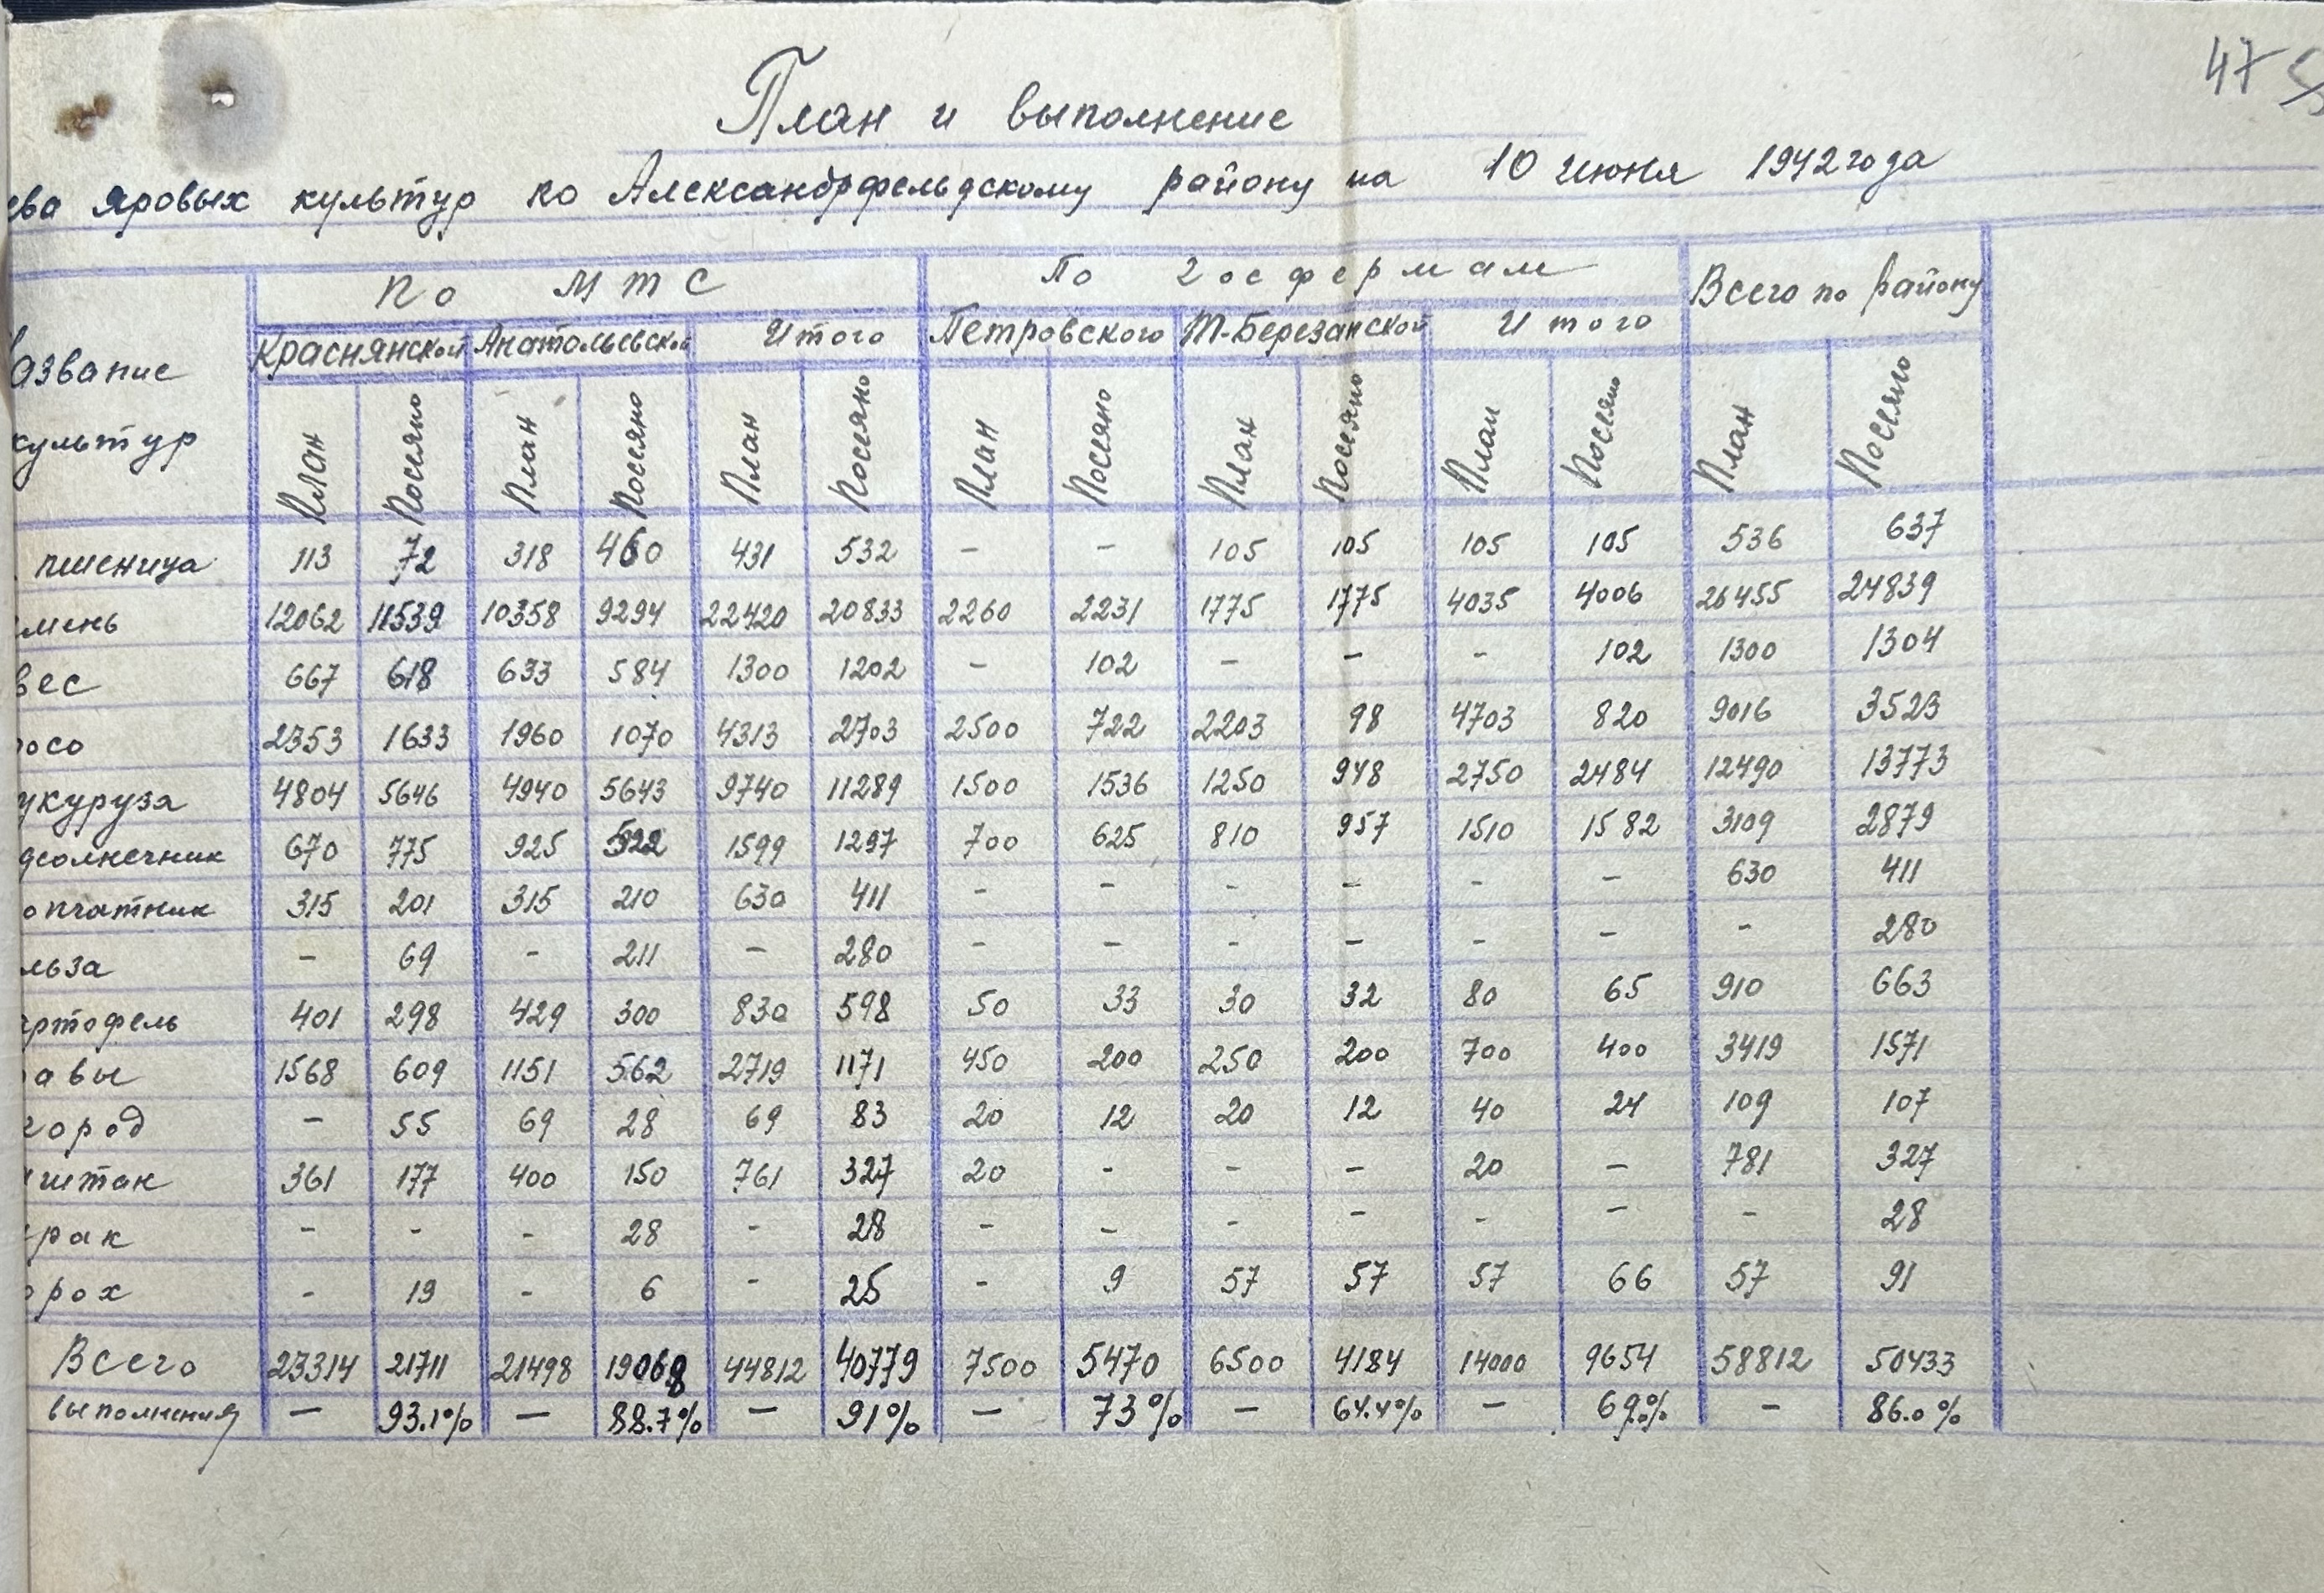 47
План и выполнение
ева яровых культур по Александрфельдскому району на 10 июня 1942 года
азвание культур
По МТС
По госфермам
Всего по району
Краснянской Анатольевской Итого Петровского Т-Березанской Итого
План Посеяно План Посеяно План Посеяно План Посеяно План Посеяно План Посеяно План Посеяно
пшеница 113 72 318 460 431 532 - - 105 105 105 105 536 637
мень 12062 11539 10358 9294 22420 20833 2260 2231 1775 1775 4035 4006 26455 24839
вес 667 618 633 584 1300 1202 - 102 - - - 102 1300 1304
осо 2353 1633 1960 1070 4313 2703 2500 722 2203 98 4703 820 9016 3523
укуруза 4804 5646 4940 5643 9740 11289 1500 1536 1250 948 2750 2484 12490 13773
дсолнечник 670 775 925 522 1599 1297 700 625 810 957 1510 1582 3109 2879
опчатник 315 201 315 210 630 411 - - - - - - 630 411
льза - 69 - 211 - 280 - - - - - - - 280
артофель 401 298 429 300 830 598 50 33 30 32 80 65 910 663
авы 1568 609 1151 562 2719 1171 450 200 250 200 700 400 3419 1571
город - 55 69 28 69 83 20 12 20 12 40 24 109 107
аштак 361 177 400 150 761 327 20 - - - 20 - 781 327
рак - - - 28 - 28 - - - - - - - 28
орох - 19 - 6 - 25 - 9 57 57 57 66 57 91
Всего 23314 21711 21498 19068 44812 40779 7500 5470 6500 4184 14000 9654 58812 50433
выполнения — 93.1% — 88.7% — 91% — 73% — 64.4% — 69% — 86.0%